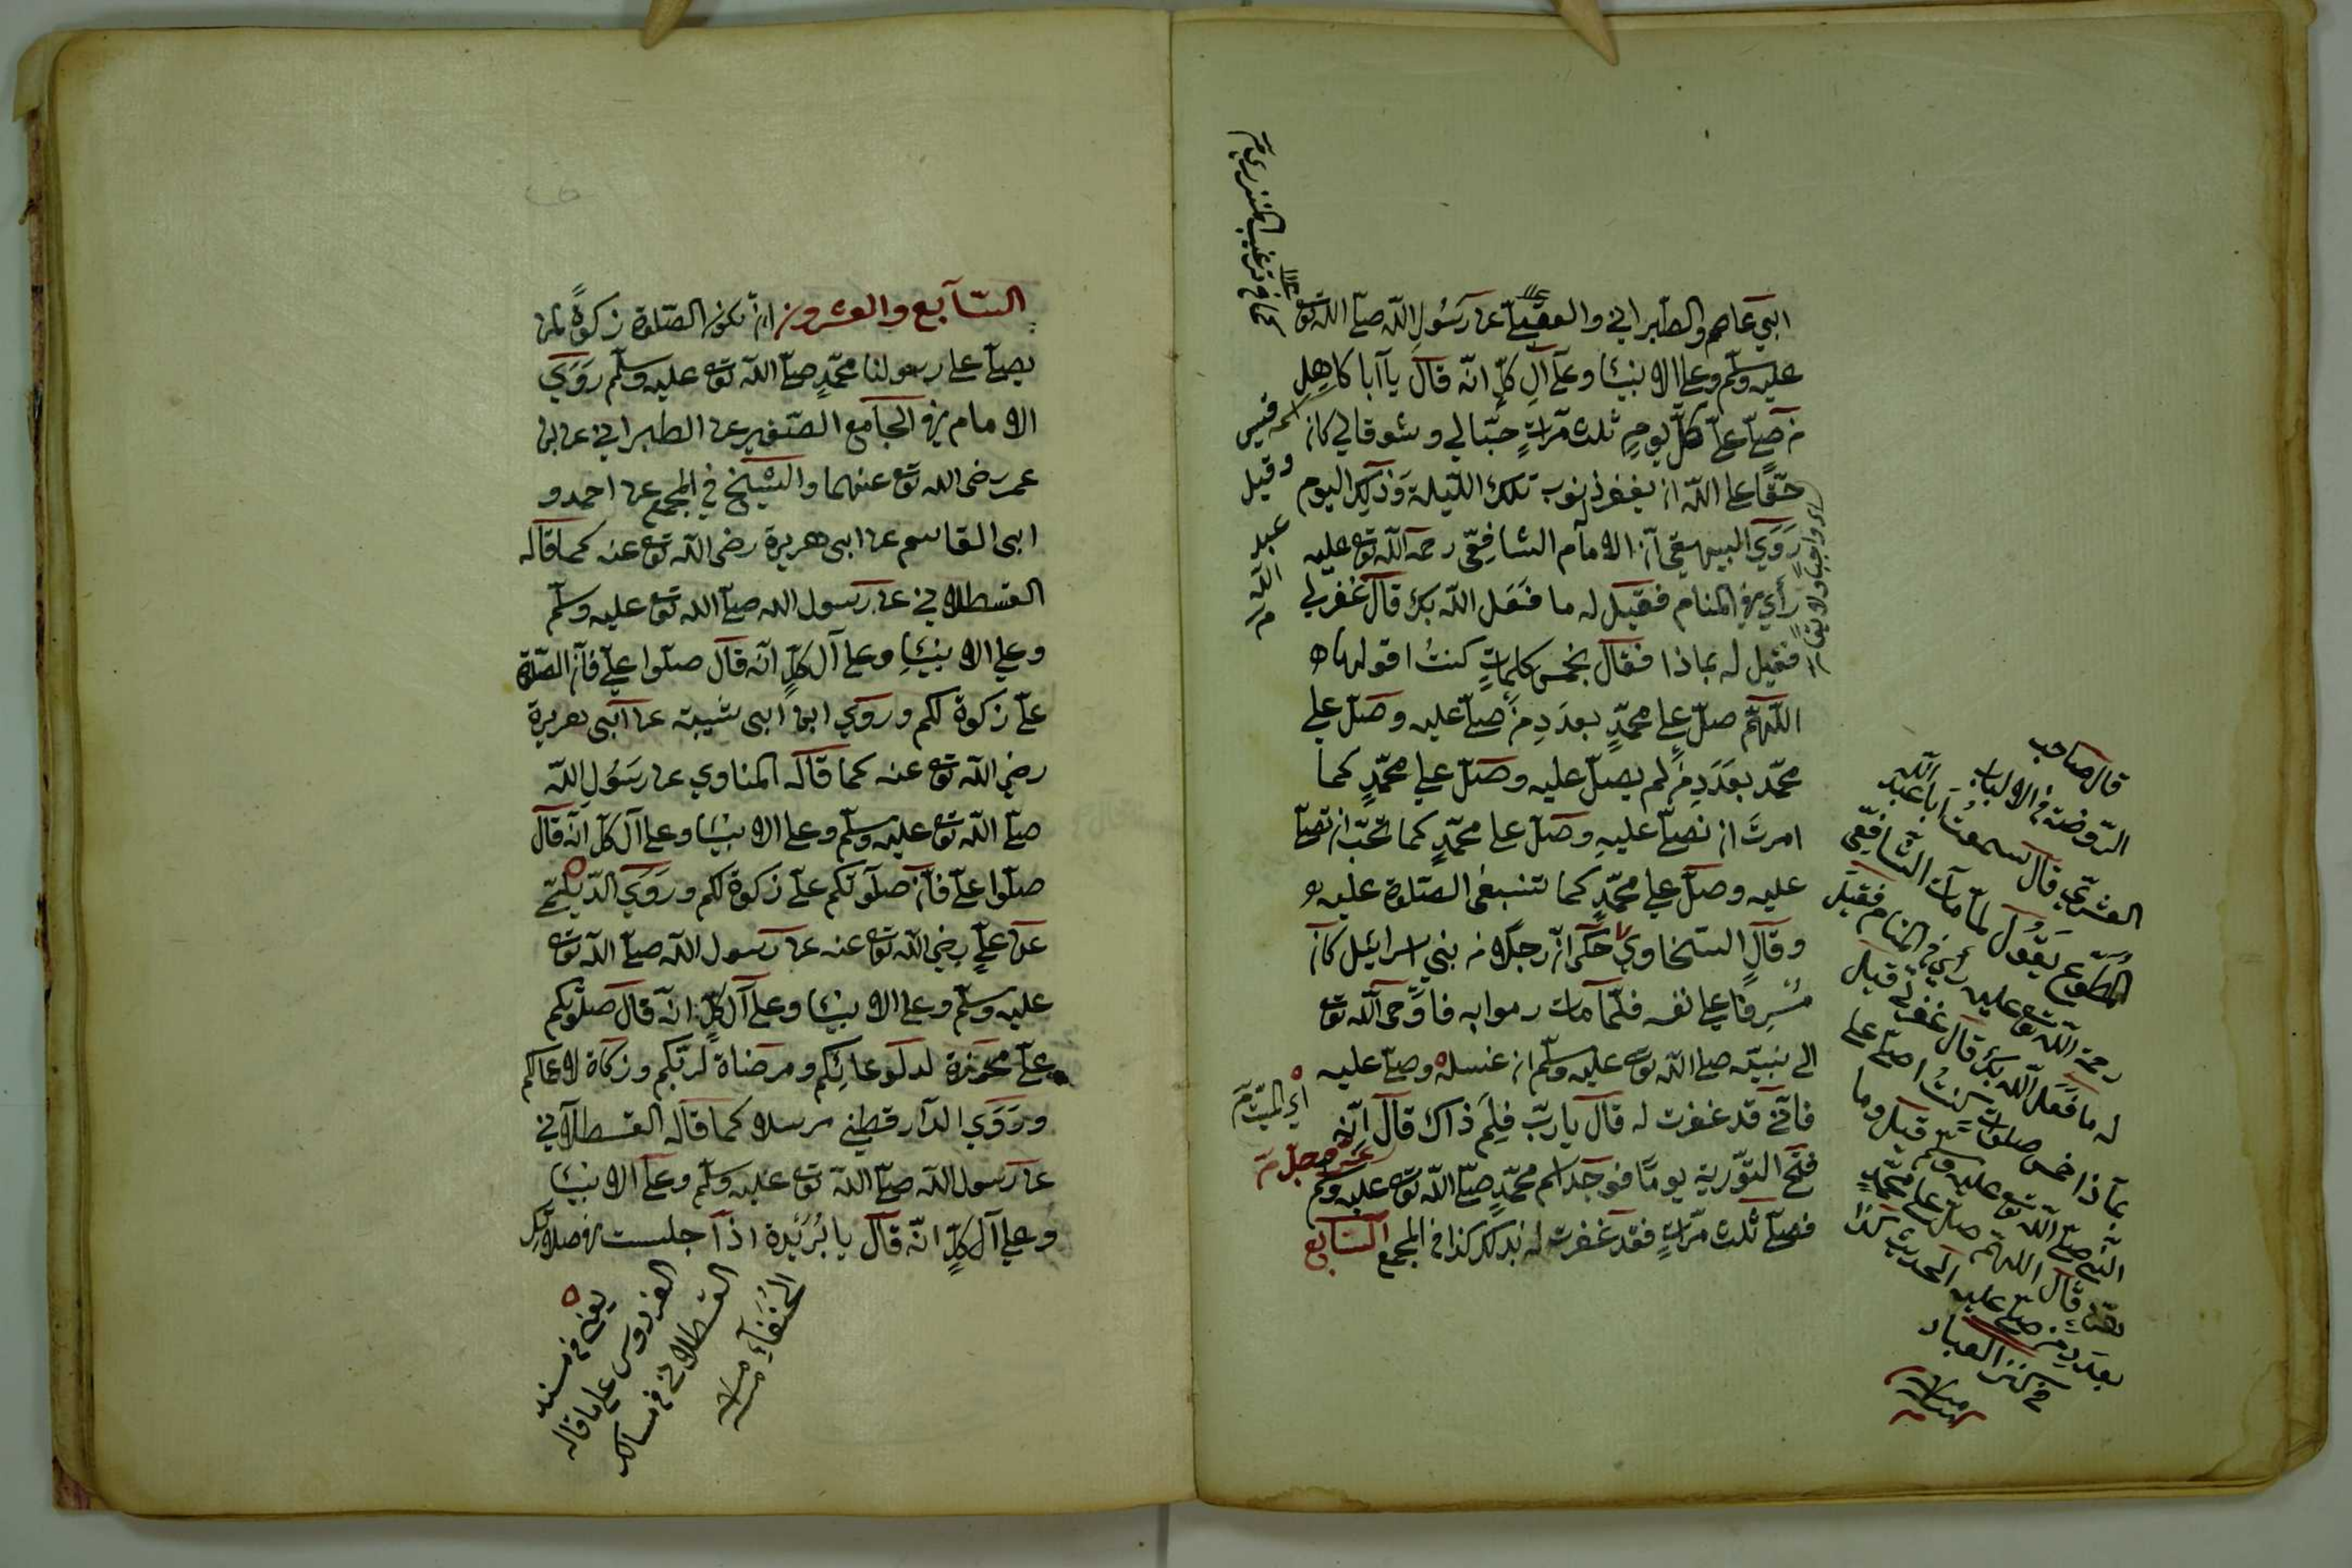 ابي عاصم والطبراني والعقيلي عن رسول الله صلى الله تع
عليه وسلم وعلى الانبيا وعلى آل كل انه قال يا ابا كاهل
من صلى علي كل يوم ثلث مرات حبا لي وشوقا لي كان
حقا على الله ان يغفر ذنوب تلك الليلة وذلك اليوم
روي البيهقي ان الامام الشافعي رحمه الله تع عليه
رأي في المنام فقيل له ما فعل الله بك قال غفر لي
فقيل له بماذا فقال بخمس كلمات كنت اقولهاه
اللهم صل على محمد بعدد من صلى عليه وصل على
محمد بعدد من لم يصل عليه وصل علي محمد كما
امرت ان نصلي عليه وصل على محمد كما تحب ان تصلى
عليه وصل علي محمد كما تنبغى الصلوة عليه
وقال السخاوي حكر ان رجلا من بني اسرائيل كان
مسرفا علي نفسه فلما مات رموا به فاوحى الله تع
الى نبيه صلى الله تع عليه وسلم ان غسله وصل عليه
فاني قد غفرت له قال يارب فلم ذاك قال انه
فتح التورية يوما فوجد اسم محمد صلى الله تع عليه وسلم
فصلى ثلث مرات فقد غفرت له بذلك كذا في المجمع السابع
كما في ترغيب المنذري
اسمه قيس
وقيل
عبد
الله
اي واجبا ولايقا
اي الميت
عز وجل
قال صاحب
الروضة في الالباب
القشري قال سمعت ابا عبد الله
المطوع يقول لما مات الشافعي
رحمة الله تع عليه رأي في المنام فقيل
له ما فعل الله بك قال غفر له قيل
بماذا خمس صلوات كنت اصلي على
النبي صلى الله تع عليه وسلم قيل وما
قال اللهم صل على محمد
بعدد من صلى عليه الحديث كذا
في كنز العباد
السابع والعشرون ان تكون الصلوة زكوة لمن
يصلي على رسولنا محمد صلى الله تع عليه وسلم روي
الامام في الجامع الصغير عن الطبراني عن ابن
عمر رضى الله تع عنهما والشيخ في المجمع عن احمد و
ابى القاسم عن ابى هريرة رضى الله تع عنه كما قاله
القسطلاني عن رسول الله صلى الله تع عليه وسلم
وعلى الانبيا وعلى آل كل انه قال صلوا علي فان الصلوة
علي زكوة لكم وروي ابن ابى شيبة عن ابى هريرة
رضي الله تع عنه كما قاله المناوي عن رسول الله
صلى الله تع عليه وسلم وعلى الانبيا وعلى آل كل انه قال
صلوا علي فان صلوتكم علي زكوة لكم وروي الديلمي
عن علي رضي الله تع عنه عن رسول الله صلى الله تع
عليه وسلم وعلى الانبيا وعلى آل كل انه قال صلوتكم
علي محرزة لدعائكم ومرضاة لربكم وزكاة لاعمالكم
وروي الدارقطني مرسلا كما قاله القسطلاني
عن رسول الله صلى الله تع عليه وسلم وعلى الانبيا
وعلي آل كل انه قال يا بريدة اذا جلست في صلاتك
يعني في مسند
الفردوس على ما قاله
القسطلاني في مسالك
الحنفاء